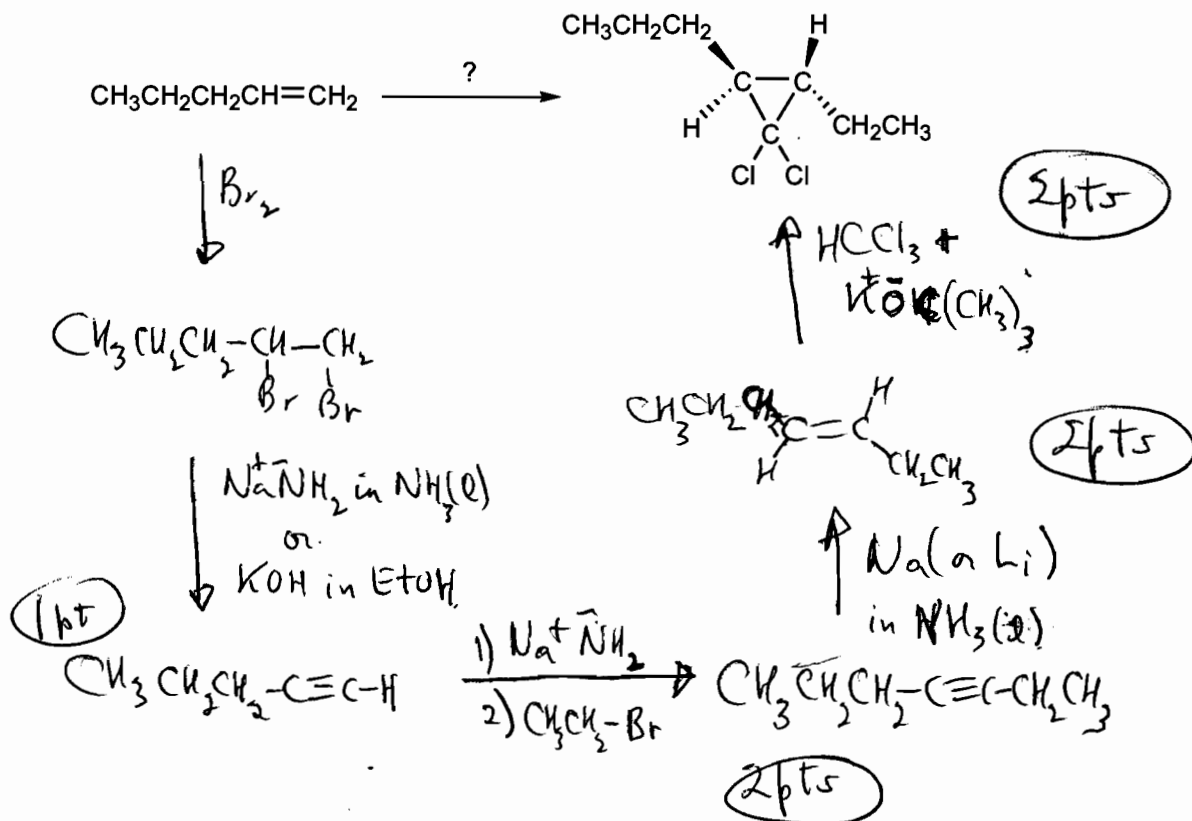 CH3CH2CH2CH=CH2
?
CH3CH2CH2
H
C
C
H
C
CH2CH3
Cl
Cl
Br2
CH3CH2CH2-CH-CH2
Br Br
Na+ -NH2 in NH3(l)
or
KOH in EtOH
1pt
CH3CH2CH2-C≡C-H
1) Na+ -NH2
2) CH3CH2-Br
CH3CH2CH2-C≡C-CH2CH3
2pts
Na (or Li)
in NH3(l)
CH3CH2CH2
H
C=C
H
CH2CH3
2pts
HCCl3 +
K+ -OC(CH3)3
2pts